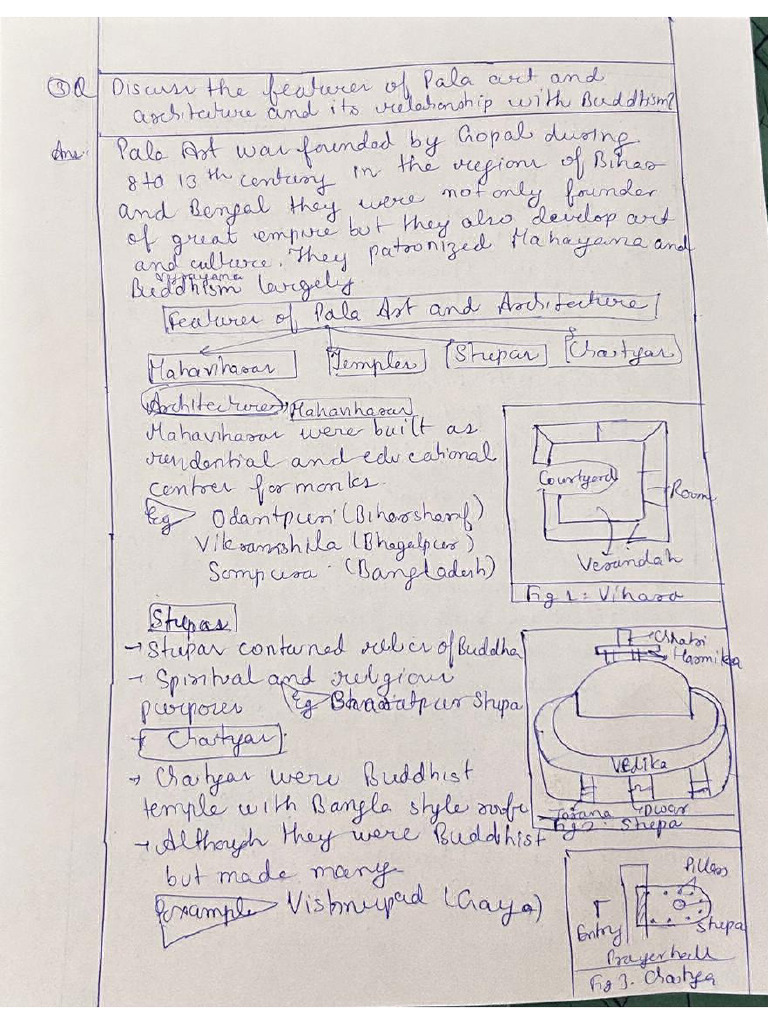 ③Q Discuss the features of Pala art and
architecture and its relationship with Buddhism?
Ans: Pala Art was founded by Gopal during
8 to 13th century in the regions of Bihar
and Bengal they were not only founder
of great empire but they also develop art
and culture. They patronized Mahayana and
Vajrayana
Buddhism largely
Features of Pala Art and Architecture
Mahaviharas Temples Stupas Chaityas
Architecture Mahaviharas
Mahaviharas were built as
residential and educational
centres for monks.
Eg Odantpuri (Biharsharif)
Vikramshila (Bhagalpur)
Sompura (Bangladesh)
Courtyard
Room
Verandah
Fig 1: Vihara
Stupas
→ Stupas contained relics of Buddha
→ Spiritual and religious
purposes Eg Bharatpur Stupa
Chhatri
Harmika
Vedika
Torana Dwar
Fig 2: Stupa
→ Chaityas
→ Chaityas were Buddhist
temple with Bangla style roofs
→ Although they were Buddhist
but made many
Example Vishnupad (Gaya)
Pillars
Stupa
Entry
Prayer hall
Fig 3. Chaitya